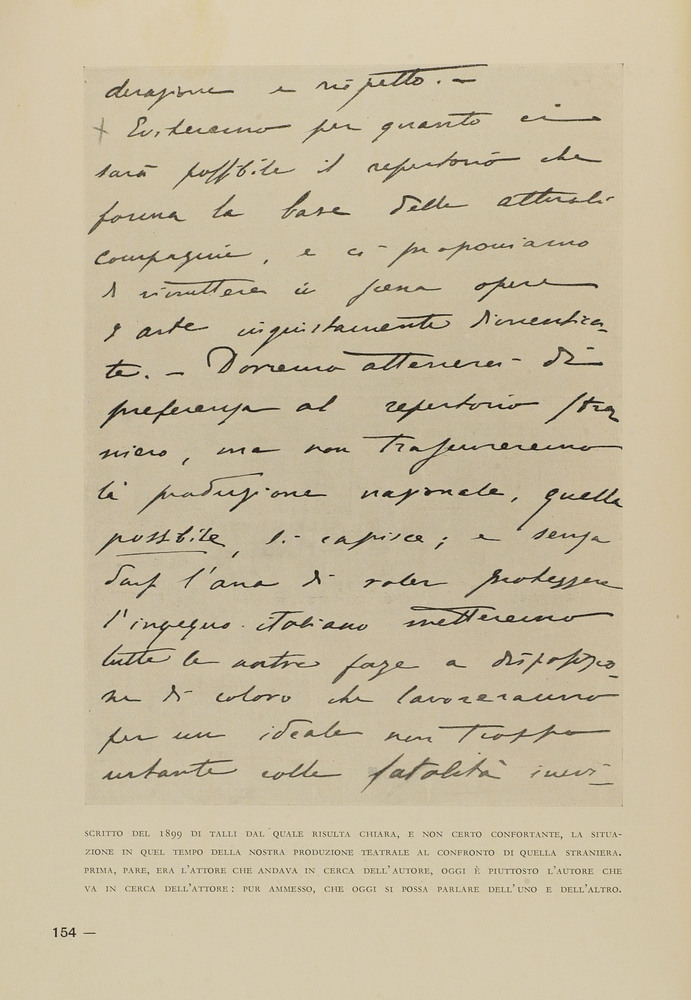 derazione e rispetto. —
+ Eviteremo per quanto ci
sarà possibile il repertorio che
forma la base delle attuali
compagnie, e ci proponiamo
di rimettere in scena opere
d'arte ingiustamente dimentica-
te. — Dovremo attenerci di
preferenza al repertorio stra
niero, ma non trascureremo
la produzione nazionale, quella
possibile, si capisce; e senza
darsi l'aria di voler proteggere
l'ingegno italiano metteremo
tutte le nostre forze a disposizio-
ne di coloro che lavoreranno
per un ideale non troppo
urtante colle fatalità inevi-
SCRITTO DEL 1899 DI TALLI DAL QUALE RISULTA CHIARA, E NON CERTO CONFORTANTE, LA SITUA-
ZIONE IN QUEL TEMPO DELLA NOSTRA PRODUZIONE TEATRALE AL CONFRONTO DI QUELLA STRANIERA.
PRIMA, PARE, ERA L'ATTORE CHE ANDAVA IN CERCA DELL'AUTORE, OGGI È PIUTTOSTO L'AUTORE CHE
VA IN CERCA DELL'ATTORE: PUR AMMESSO, CHE OGGI SI POSSA PARLARE DELL'UNO E DELL'ALTRO.
154 —